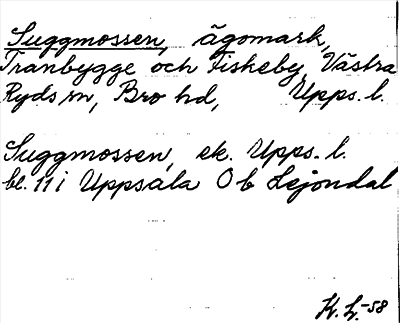 Suggmossen, ägomark,
Tranbygge och Fiskeby, Västra
Ryds sn, Bro hd, Upps. l.
Suggmossen, ek. Upps. l.
bl. 11 i Uppsala Ö b Lejondal
K. L. -58